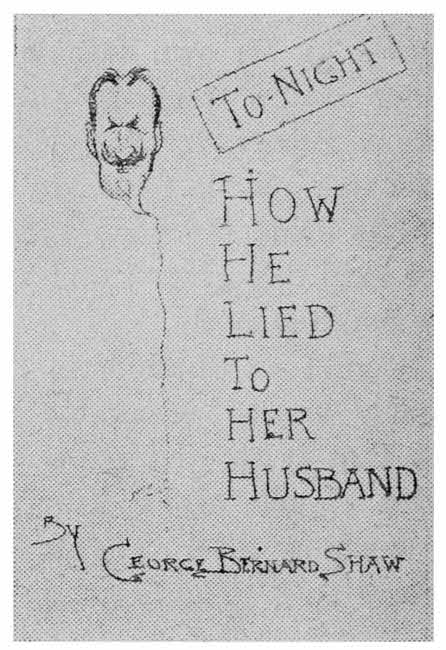 TO-NIGHT
HOW
HE
LIED
TO
HER
HUSBAND
By
GEORGE BERNARD SHAW